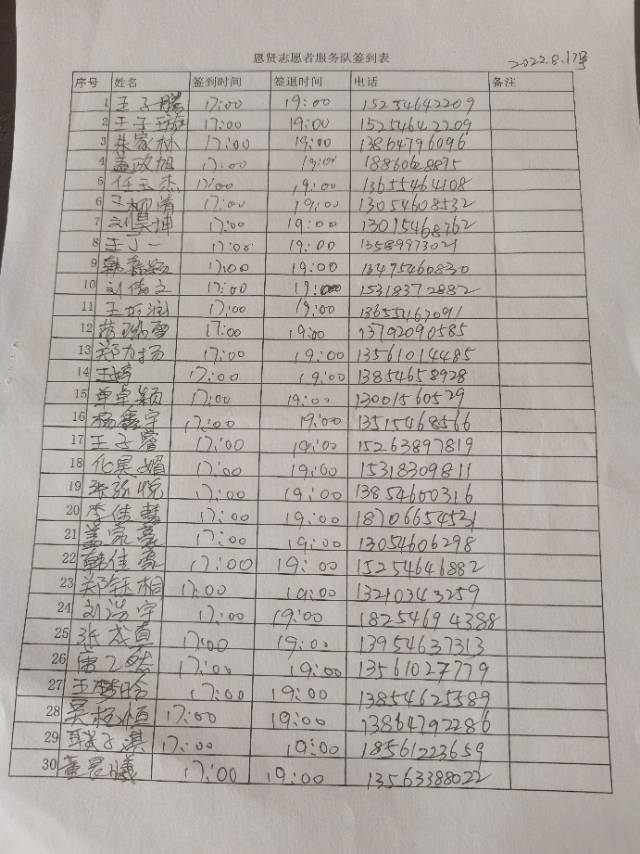 恩贤志愿者服务队签到表
2022.8.17号
序号 姓名 签到时间 签退时间 电话 备注
1 王子腾 17:00 19:00 15254642209
2 王子璇 17:00 19:00 15254642209
3 朱家林 17:00 19:00 13864796096
4 盖政旭 17:00 19:00 18860628875
5 任玉杰 17:00 19:00 13655464108
6 王柳清 17:00 19:00 13054608532
7 刘昊坤 17:00 19:00 13015468762
8 王丁一 17:00 19:00 13589973021
9 韩鑫颖 17:00 19:00 13475460830
10 刘倩文 17:00 19:00 15318372882
11 王 润 17:00 19:00
12 17:00 19:00 13792090585
13 郑力扬 17:00 19:00 13561014485
14 王婷 17:00 19:00 13854658928
15 单卓颖 17:00 19:00 13001560529
16 杨鑫宇 17:00 19:00 13515468566
17 王子睿 17:00 19:00 15263897819
18 化昊媚 17:00 19:00 15318309811
19 张弥悦 17:00 19:00 13854600316
20 李佳慧 17:00 19:00 18706654521
21 盖家豪 17:00 19:00 13054606298
22 韩佳豪 17:00 19:00 15254646882
23 郑钰桐 17:00 19:00 13210343259
24 刘浩宇 17:00 19:00 18254694388
25 张龙真 17:00 19:00 13954637313
26 唐乙然 17:00 19:00 13561027779
27 王梦晗 17:00 19:00 13854625589
28 吴柯恒 17:00 19:00 13864792286
29 联子淇 17:00 19:00 18561223659
30 董冠曦 17:00 19:00 13563388022